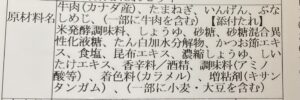 原材料名
牛肉(カナダ産)、たまねぎ、いんげん、ぶな
しめじ、(一部に牛肉を含む)【添付たれ】
米発酵調味料、しょうゆ、砂糖、砂糖混合異
性化液糖、たん白加水分解物、かつお節エキ
ス、食塩、昆布エキス、濃縮しょうゆ、しい
たけエキス、香辛料／酒精、調味料(アミノ
酸等)、着色料(カラメル)、増粘剤(キサン
タンガム)、(一部に小麦・大豆を含む)